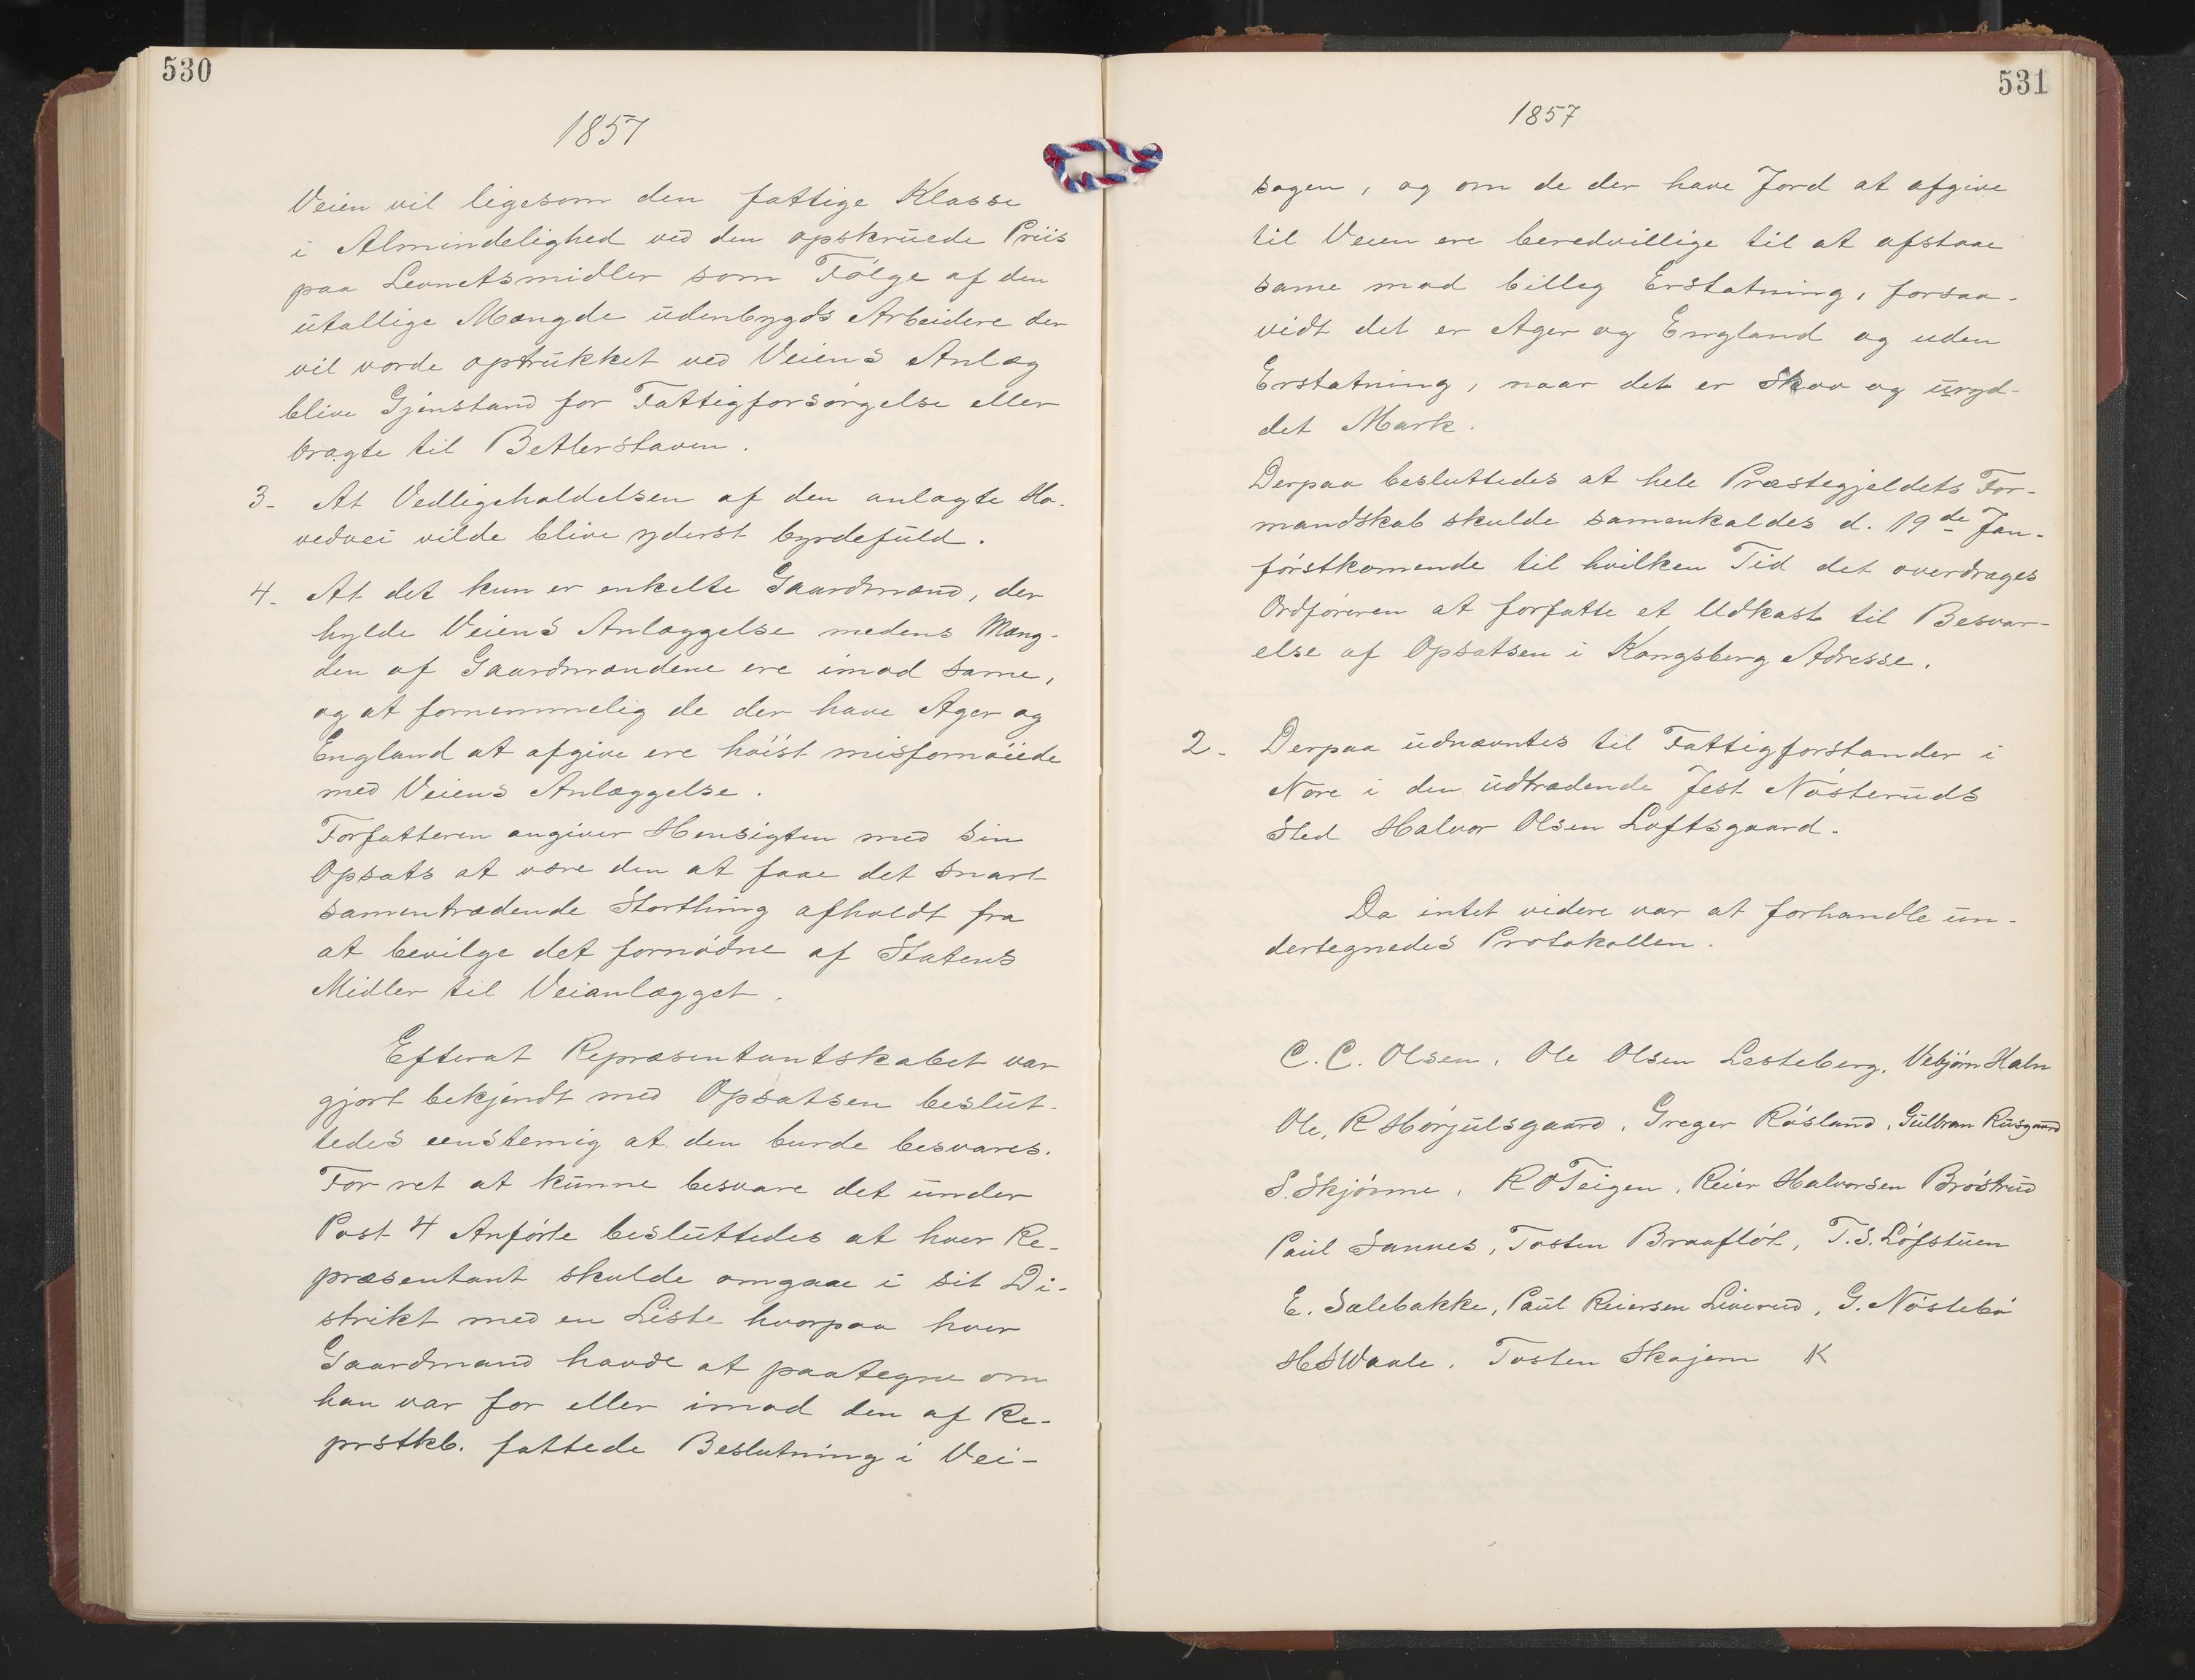 530
1857
Veien vil ligesom den fattige Klasse
i Almindelighed ved den opskruede Priis
paa Levnetsmidler som Følge af den
utallige Mængde udenbygds Arbeidere der
vil vorde optrukket ved Veiens Anlæg
blive Gjenstand for Fattigforsørgelse eller
bragte til Betlerstaven.
3- At Vedligeholdelsen af den anlagte Ho-
vedvei vilde blive yderst byrdefuld.
4. At det kun er enkelte Gaardmænd, der
hylde Veiens Anlæggelse medens Mæng-
den af Gaardmændene ere imod same,
og at fornemmelig de der have Ager og
England at afgive ere høist misfornøiede
med Veiens Anlæggelse.
Forfatteren angiver Hensigten med sin
Opsats at være den at faae det snart
samentrædende Storthing afholdt fra
at bevilge det fornødne af Statens
Midler til Veianlægget.
Efterat Repræsentantskabet var
gjort bekjendt med Opsatsen beslut-
tedes eenstemig at den burde besvares.
For ret at kunne besvare det under
Post 4 Anførte besluttedes at hver Re-
præsentant skulde omgaae i sit Di-
strikt med en Liste hvorpaa hver
Gaardmand havde at paategne om
han var for eller imod den af Re-
prstkb. fattede Beslutning i Vei-
531
1857
sagen, og om de der have Jord at afgive
til Veien ere beredvillige til at afstaae
same mod billig Erstatning, forsaa-
vidt det er Ager og England og uden
Erstatning, naar det er Skov og uryd-
det Mark.
Derpaa besluttedes at hele Præstegjeldets For-
mandskab skulde samenkaldes d. 19de Jan.
førstkomende til hvilken Tid det overdrages
Ordføreren at forfatte et Udkast til Besvar-
else af Opsatsen i Kongsberg Adresse.
2- Derpaa udnævntes til Fattigforstander i
Nore i den udtrædende Jest Nøsteruds
Sted Halvor Olsen Loftsgaard.
Da intet videre var at forhandle un-
dertegnedes Protokollen.
C. C. Olsen, Ole Olsen Lesteberg, Vebjørn Haln
Ole, R Hørjulsgaard, Greger Røsland, Gulbran Rusgaard
S. Skjønne, R O Teigen, Reier Halvorsen Brøstrud
Paul Sannes, Tosten Braafløt, T. S. Løfstuen
E. Salebakke, Paul Reiersen Liverud, G. Nøstebø
H S Waale, Tosten Skajem K